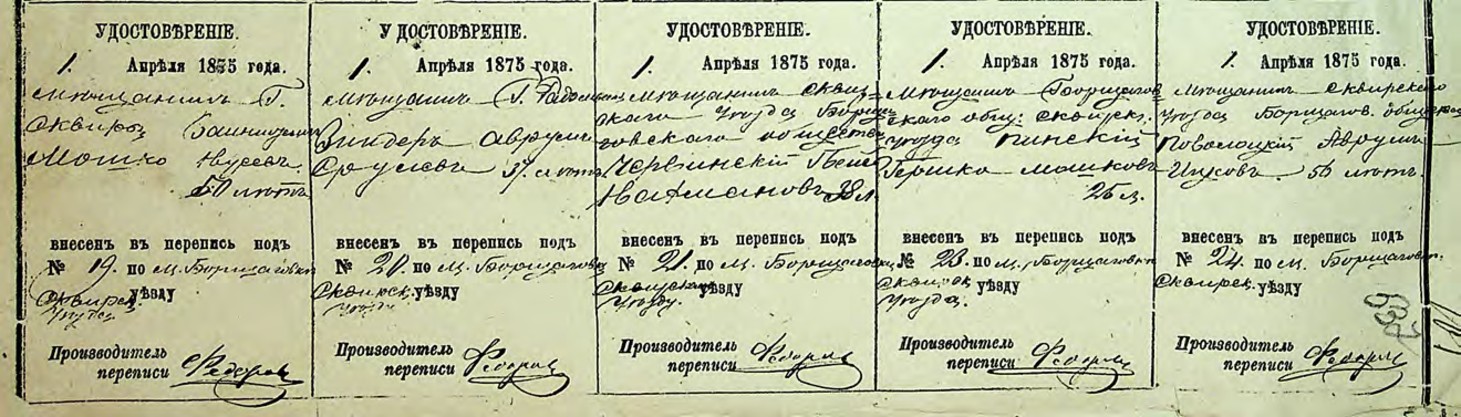 УДОСТОВѢРЕНІЕ.
1. Апрѣля 1875 года.
мѣщанинъ г.
Сквиры
Мошко Нусевъ
50 лѣтъ
внесенъ въ перепись подъ
№ 19. по м. Борщаговкѣ
Сквирск. уѣзду
уѣзда
Производитель
переписи Федоров
УДОСТОВѢРЕНІЕ.
1. Апрѣля 1875 года.
мѣщанинъ г.
Виндеръ Аврумъ
Срулевъ 37 лѣтъ
внесенъ въ перепись подъ
№ 20. по м. Борщаговкѣ
Сквирск. уѣзду
уѣзда
Производитель
переписи Федоров
УДОСТОВѢРЕНІЕ.
1. Апрѣля 1875 года.
мѣщанинъ Сквир-
скаго уѣзда Борща-
говскаго общества
Червинскій
Нахмановъ 38 л.
внесенъ въ перепись подъ
№ 21. по м. Борщаговкѣ
уѣзду
уѣзду.
Производитель
переписи Федоров
УДОСТОВѢРЕНІЕ.
1. Апрѣля 1875 года.
мѣщанинъ Борщагов-
скаго общ: сквирск.
уѣзда Пинскій
Гершко Мошковъ
25 л.
внесенъ въ перепись подъ
№ 23. по м. Борщаговкѣ
Сквирск. уѣзду
уѣзда.
Производитель
переписи Федоров
УДОСТОВѢРЕНІЕ.
1. Апрѣля 1875 года.
мѣщанинъ Сквирскаго
уѣзда Борщагов. общества
Поволоцкій Аврумъ
Ицковъ. 55 лѣтъ.
внесенъ въ перепись подъ
№ 24. по м. Борщаговк.
Сквирск. уѣзду
Производитель
переписи Федоров